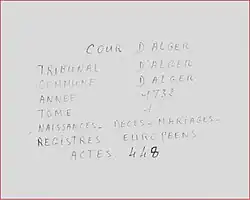 COUR D'ALGER
TRIBUNAL D'ALGER
COMMUNE D'ALGER
ANNEE 1732
TOME 1
NAISSANCES - DECES - MARIAGES -
REGISTRES EUROPEENS
ACTES 448